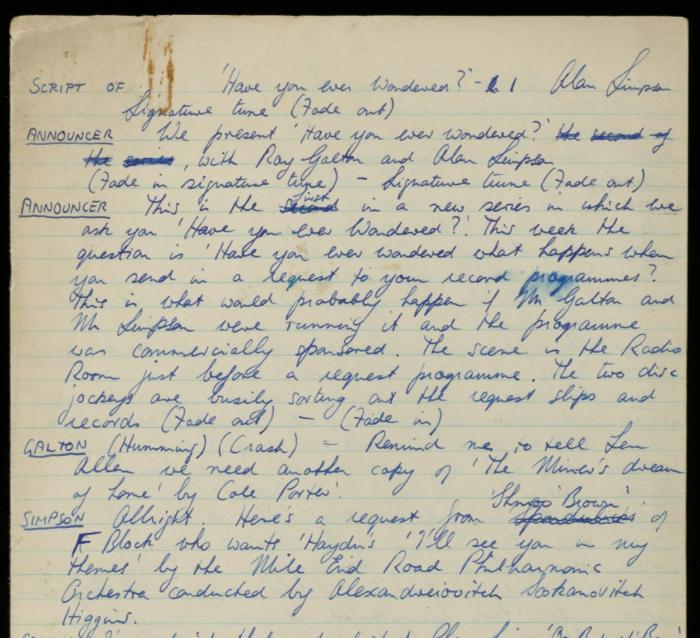 SCRIPT OF 'Have you ever Wondered?' - 1 Alan Simpson
Signature tune (Fade out)
ANNOUNCER We present 'Have you ever wondered?' the second of
the series, with Ray Galton and Alan Simpson
(Fade in signature tune) - Signature tune (Fade out)
ANNOUNCER This is the second first in a new series in which we
ask you 'Have you ever Wondered?'. This week the
question is 'Have you ever wondered what happens when
you send in a request to your record programmes?
This is what would probably happen if Mr Galton and
Mr Simpson were running it and the programme
was commercially sponsored. The scene is the Radio
Room just before a request programme. The two disc
jockeys are busily sorting out the request slips and
records (Fade out) - (Fade in)
GALTON (Humming) (Crash) - Remind me to tell Len
Allen we need another copy of 'The Miner's dream
of home' by Cole Porter'.
SIMPSON Allright. Here's a request from 'Shrimp Brown' of
F Block who wants 'Haydn's 'I'll see you in my
themes' by the Mile End Road Philharmonic
Orchestra conducted by Alexandreiovitch Sookanovitch
Higgins.